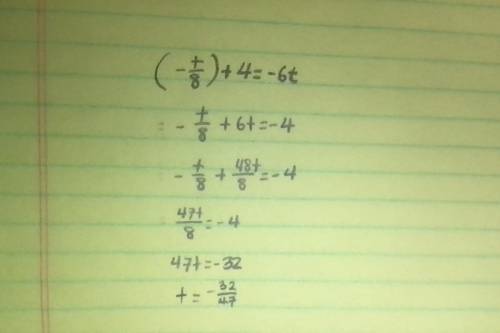 (-t/8)+4=-6t
-t/8+6t=-4
-t/8+48t/8=-4
47t/8=-4
47t=-32
t=-32/47